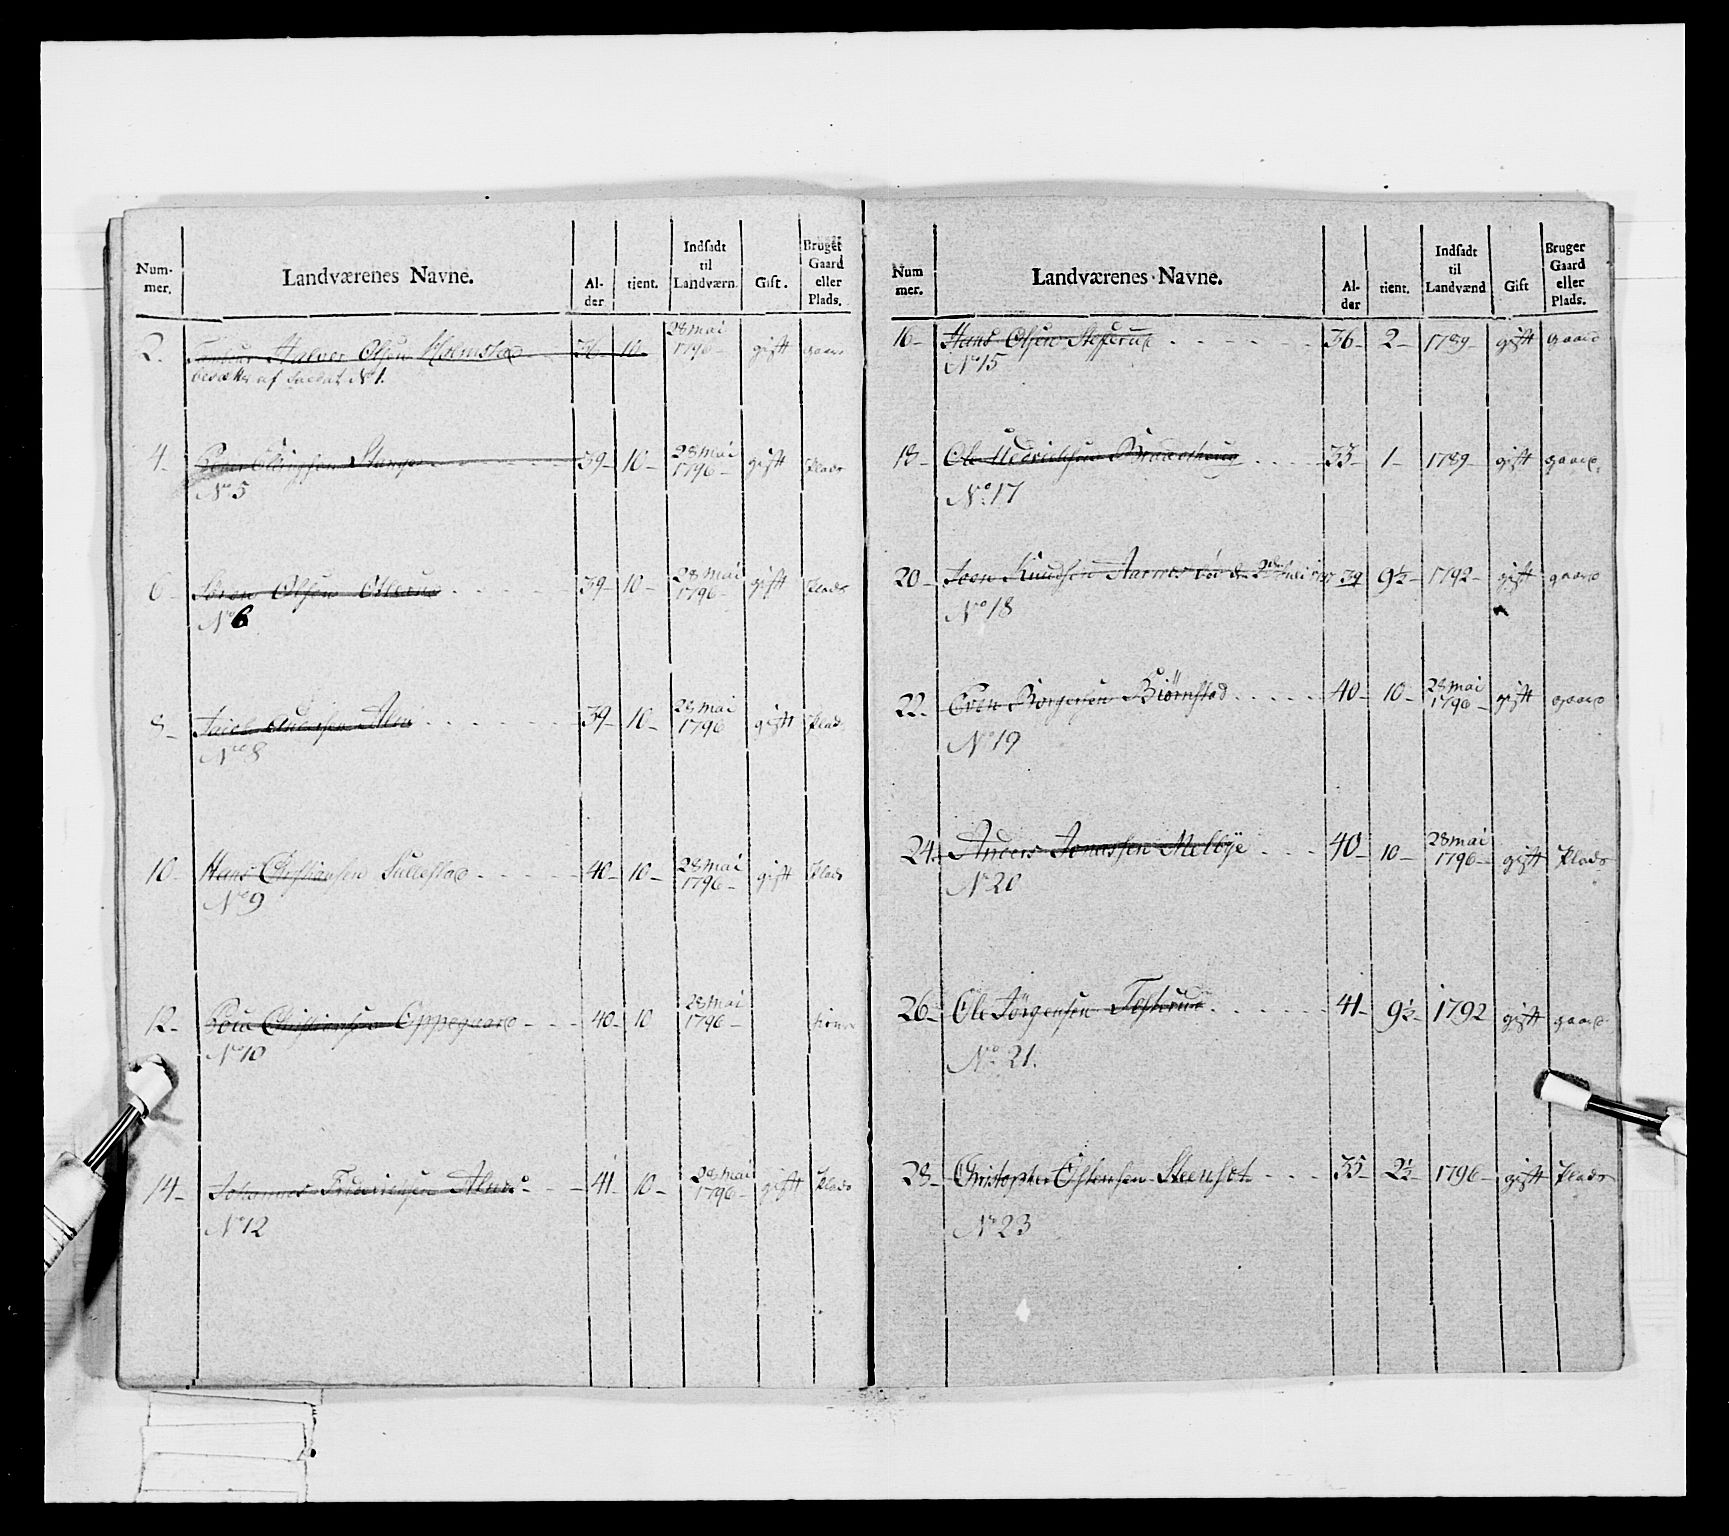 Num-
mer.
Landværenes Navne.
Al-
der
tient.
Indsadt
til
Landværn.
Gift.
Bruger
Gaard
eller
Plads.
2. Halvor Olsen Holmstad 36 10 28 mai 1796 gift gaard
besættes af Soldat No 1.
4 39 10 28 mai 1796 gift Plads
No 5
6 Søren Olsen 39 10 28 mai 1796 gift Plads
No 6
8 Jacob 39 10 28 mai 1796 gift Plads
No 8
10 Hans Christiansen Sullestad 40 10 28 mai 1796 gift Plads
No 9
12 Christiansen Oppegaard 40 10 28 mai 1796
No 10
14 Johannes 41 10 28 mai 1796 gift Plads
No 12
Num
mer.
Landværenes Navne.
Al-
der
tient.
Indsadt
til
Landværnd
Gift
Bruger
Gaard
eller
Plads.
16 Hans Olsen 36 2 1789 gift gaard
No 15
18 Ole 35 1 1789 gift gaard
No 17
20 Knudsen 39 9½ 1792 gift gaard
No 18
22 Even Borgersen Biørnstad 40 10 28 mai 1796 gift gaard
No 19
24 Anders Jonassen Melbye 40 10 28 mai 1796 gift Plads
No 20
26 Ole Jørgensen Tosterud 41 9½ 1792 gift gaard
No 21.
28 Christopher Steenslet 35 2½ 1796 gift Plads
No 23